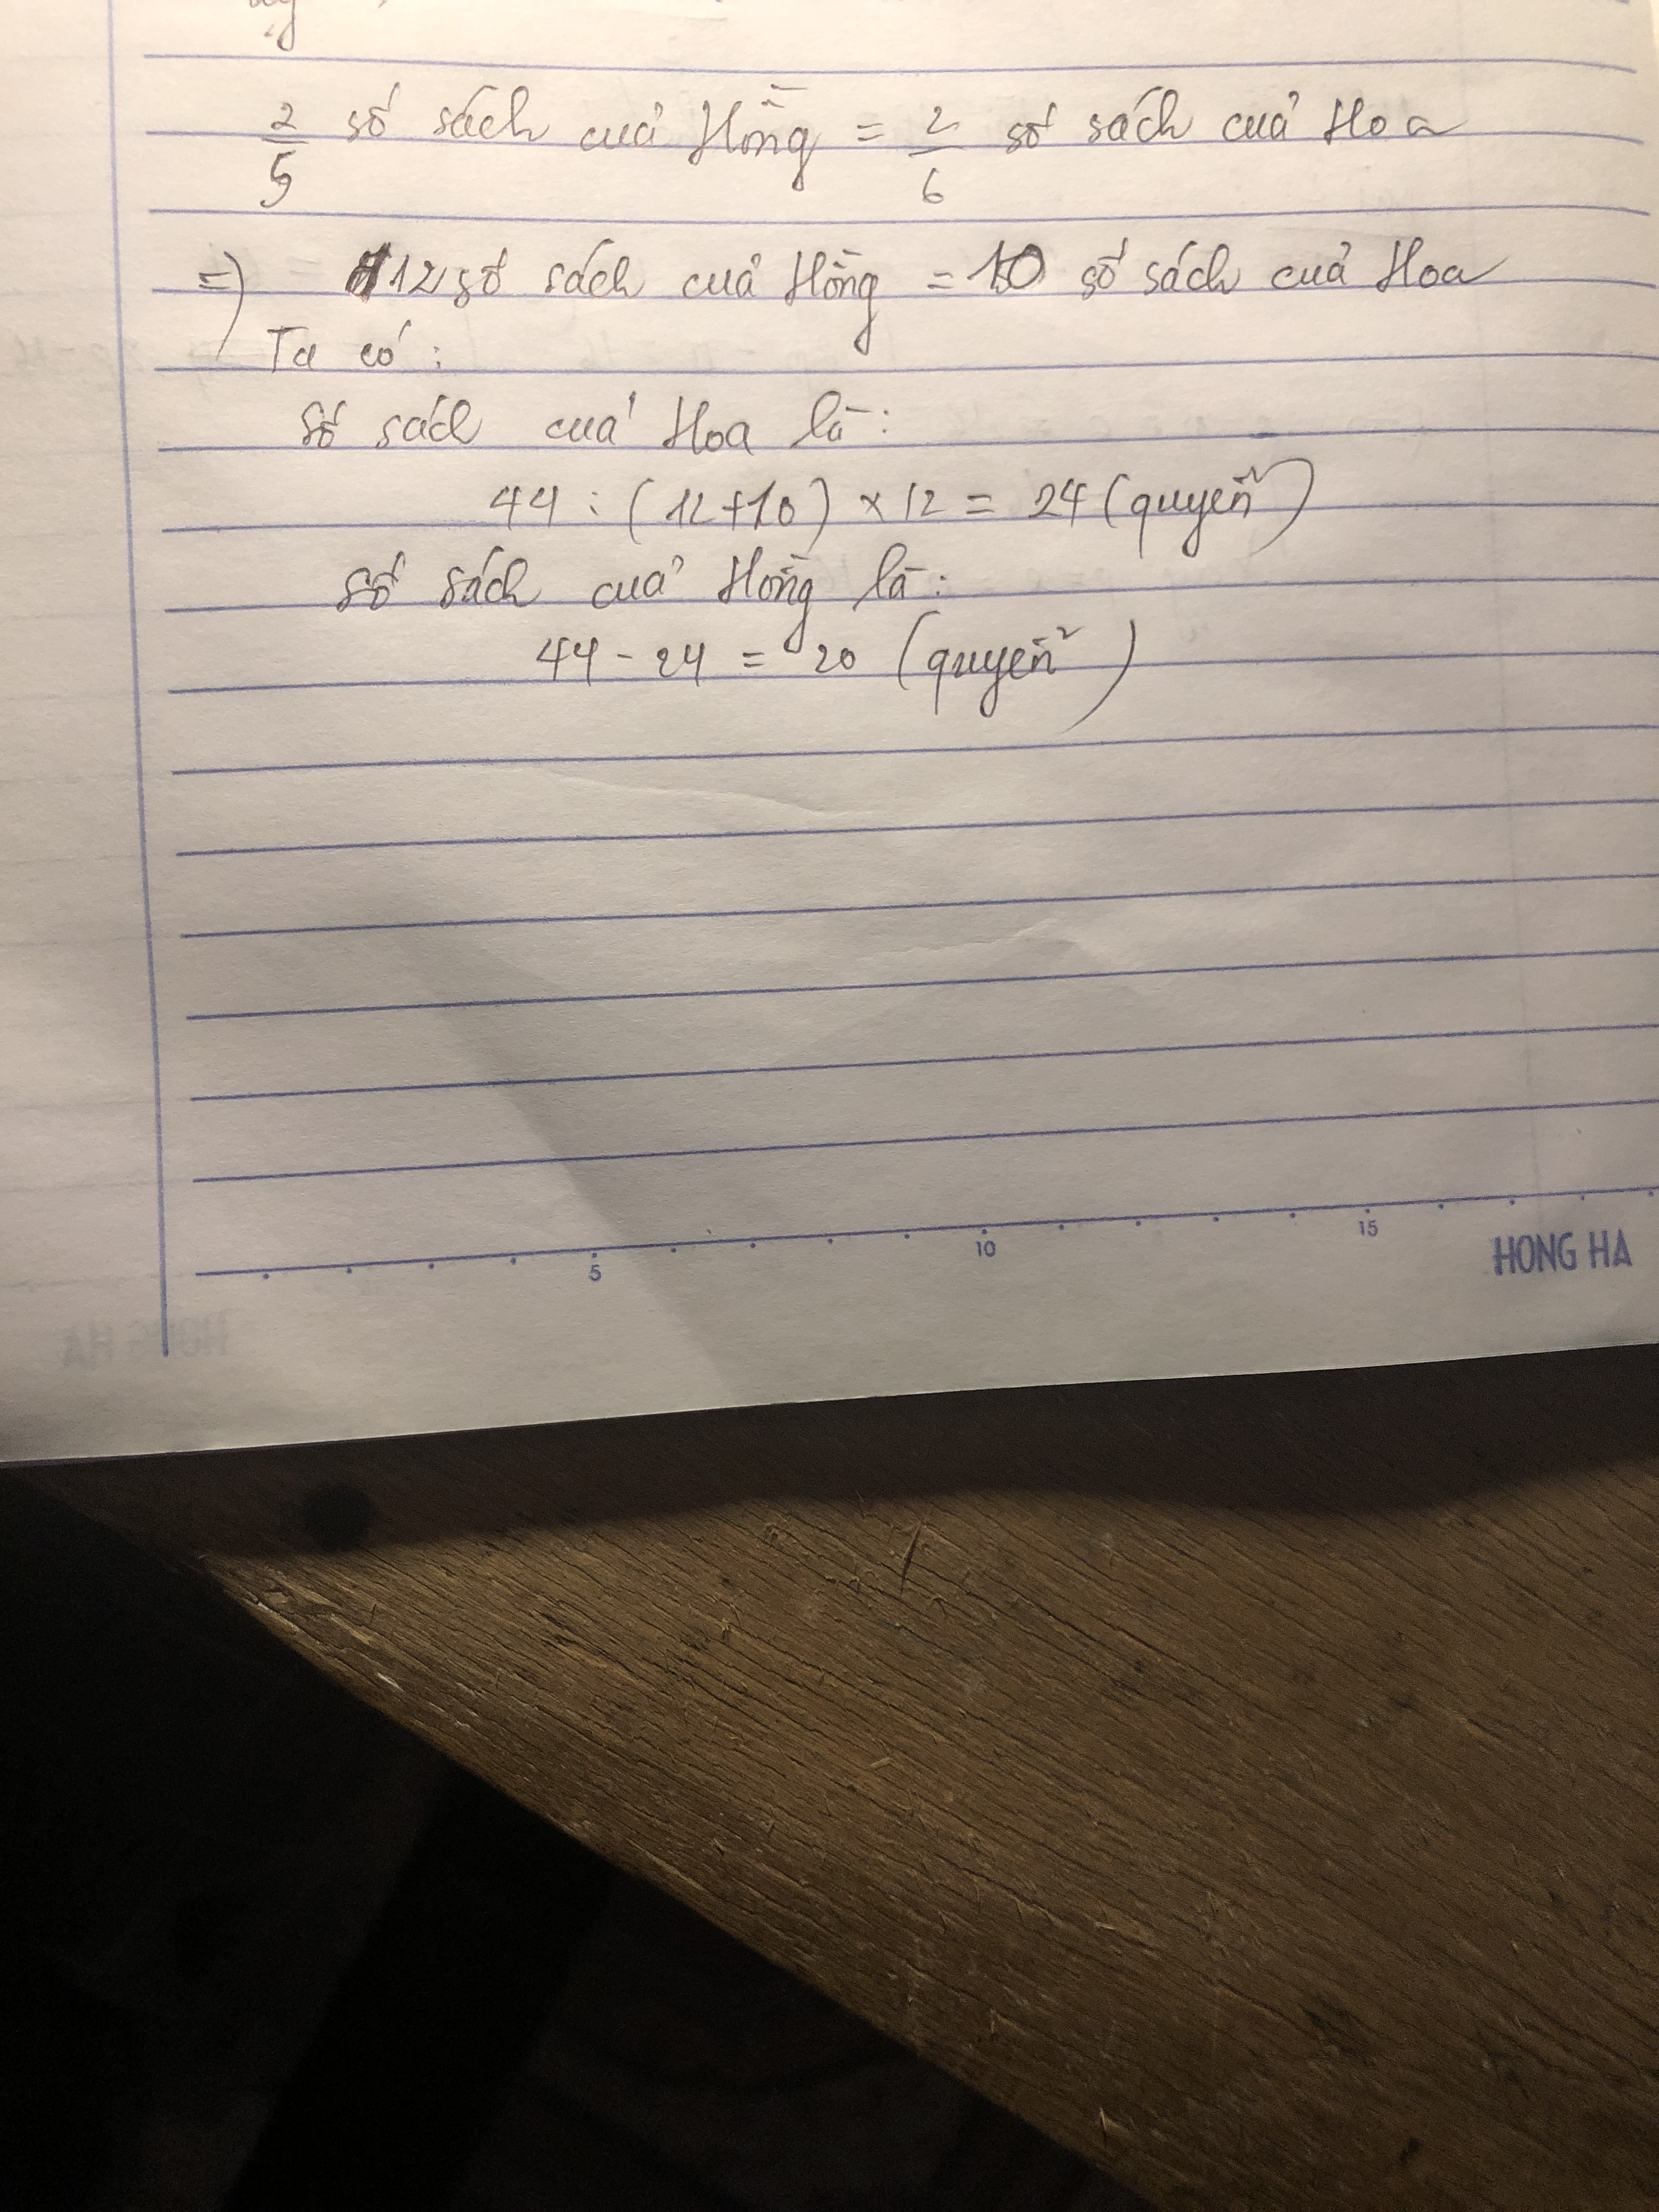 2/5 số sách cuả Hồng = 2/6 số sách cuả Hoa
=) 12 số sách cuả Hồng = 10 số sách cuả Hoa
Ta có :
Số sách cuả Hoa là :
44 : (12+10) × 12 = 24 (quyển)
số sách cuả Hồng là :
44 - 24 = 20 (quyển)
5 10 15
HONG HA